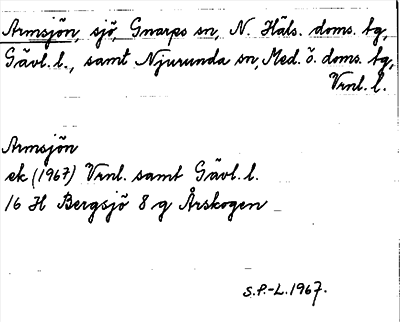 Armsjön, sjö, Gnarps sn, N. Häls. doms. bg,
Gävl. l., samt Njurunda sn, Med. ö. doms. bg,
Vrnl. l.
Armsjön
ek (1967) Vrnl. samt Gävl. l.
16 H Bergsjö 8 g Årskogen
S.P.-L. 1967.